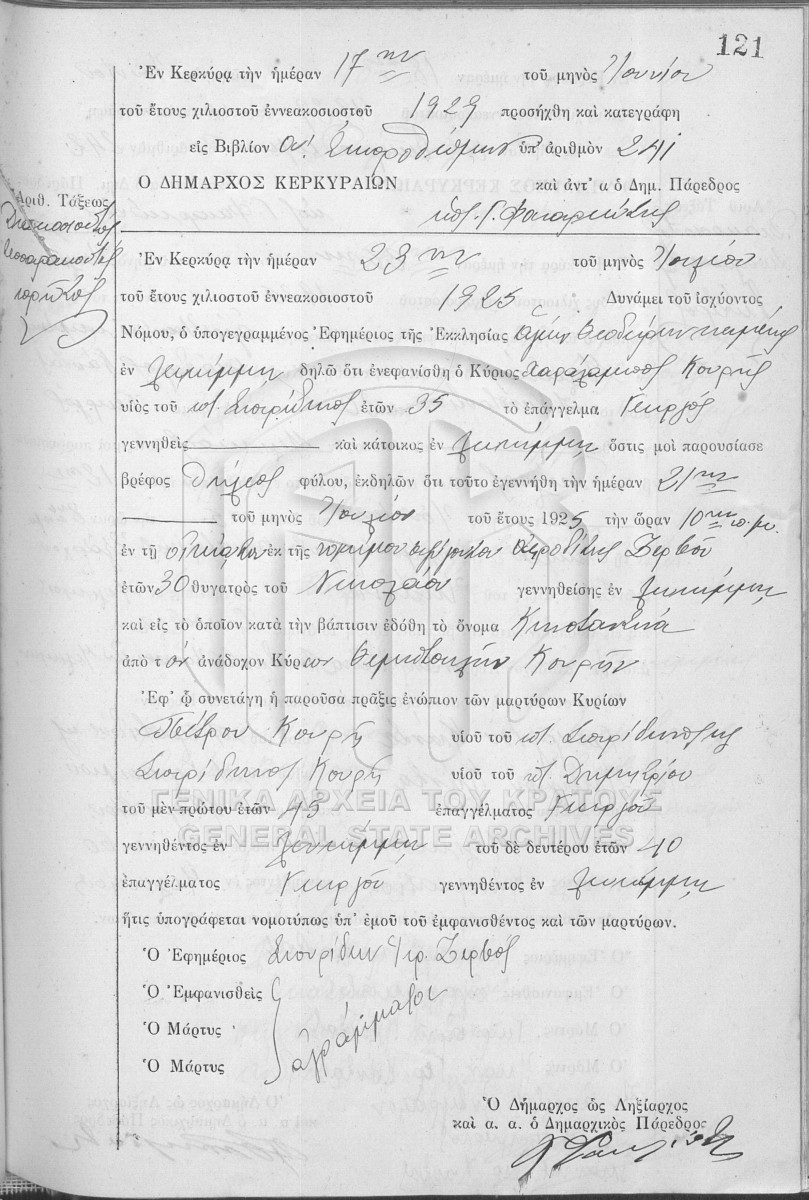 121
Ἐν Κερκύρᾳ τὴν ἡμέραν 17ην τοῦ μηνὸς Ἰουνίου
τοῦ ἔτους χιλιοστοῦ ἐννεακοσιοστοῦ 1929 προσήχθη καὶ κατεγράφη
εἰς Βιβλίον ὑπ' ἀριθμὸν 241
Ο ΔΗΜΑΡΧΟΣ ΚΕΡΚΥΡΑΙΩΝ καὶ ἀντ' α ὁ Δημ. Πάρεδρος
Ἀριθ. Τάξεως
Ἐν Κερκύρᾳ τὴν ἡμέραν 23ην τοῦ μηνὸς Ἰουλίου
τοῦ ἔτους χιλιοστοῦ ἐννεακοσιοστοῦ 1925 Δυνάμει τοῦ ἰσχύοντος
Νόμου, ὁ ὑπογεγραμμένος Ἐφημέριος τῆς Ἐκκλησίας
ἐν Λευκίμμῃ δηλῶ ὅτι ἐνεφανίσθη ὁ Κύριος Χαράλαμπος Κουρῆς
υἱὸς τοῦ ποτ. Σπυρίδωνος ἐτῶν 35 τὸ ἐπάγγελμα Γεωργὸς
γεννηθεὶς καὶ κάτοικος ἐν Λευκίμμῃ ὅστις μοὶ παρουσίασε
βρέφος θήλεος φύλου, ἐκδηλῶν ὅτι τοῦτο ἐγεννήθη τὴν ἡμέραν 21ην
τοῦ μηνὸς Ἰουλίου τοῦ ἔτους 1925 τὴν ὥραν 10ην π. μ.
ἐν τῇ οἰκίᾳ του ἐκ τῆς νομίμου συζύγου του Ἀφροδίτης Ζερβοῦ
ἐτῶν 30 θυγατρὸς τοῦ Νικολάου γεννηθείσης ἐν Λευκίμμῃ
καὶ εἰς τὸ ὁποῖον κατὰ τὴν βάπτισιν ἐδόθη τὸ ὄνομα Κωνσταντίνα
ἀπὸ τὸν ἀνάδοχον Κύριον Θεμιστοκλῆν Κουρῆν
Ἐφ' ᾧ συνετάγη ἡ παροῦσα πρᾶξις ἐνώπιον τῶν μαρτύρων Κυρίων
Πέτρου Κουρῆ υἱοῦ τοῦ ποτ. Σπυρίδωνος
Σπυρίδωνος Κουρῆ υἱοῦ τοῦ ποτ. Δημητρίου
τοῦ μὲν πρώτου ἐτῶν 45 ἐπαγγέλματος Γεωργοῦ
γεννηθέντος ἐν Λευκίμμῃ τοῦ δὲ δευτέρου ἐτῶν 40
ἐπαγγέλματος Γεωργοῦ γεννηθέντος ἐν Λευκίμμῃ
ἥτις ὑπογράφεται νομοτύπως ὑπ' ἐμοῦ τοῦ ἐμφανισθέντος καὶ τῶν μαρτύρων.
Ὁ Ἐφημέριος Σπυρίδων Ἱερ. Ζερβὸς
Ὁ Ἐμφανισθεὶς
Ὁ Μάρτυς ἀγράμματοι
Ὁ Μάρτυς
Ὁ Δήμαρχος ὡς Ληξίαρχος
καὶ α. α. ὁ Δημαρχικὸς Πάρεδρος
ΓΕΝΙΚΑ ΑΡΧΕΙΑ ΤΟΥ ΚΡΑΤΟΥΣ
GENERAL STATE ARCHIVES